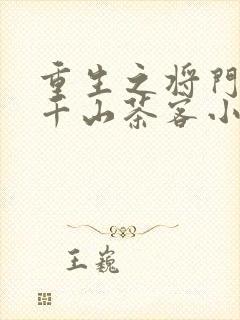 重生之将门
千山茶客小
王巍